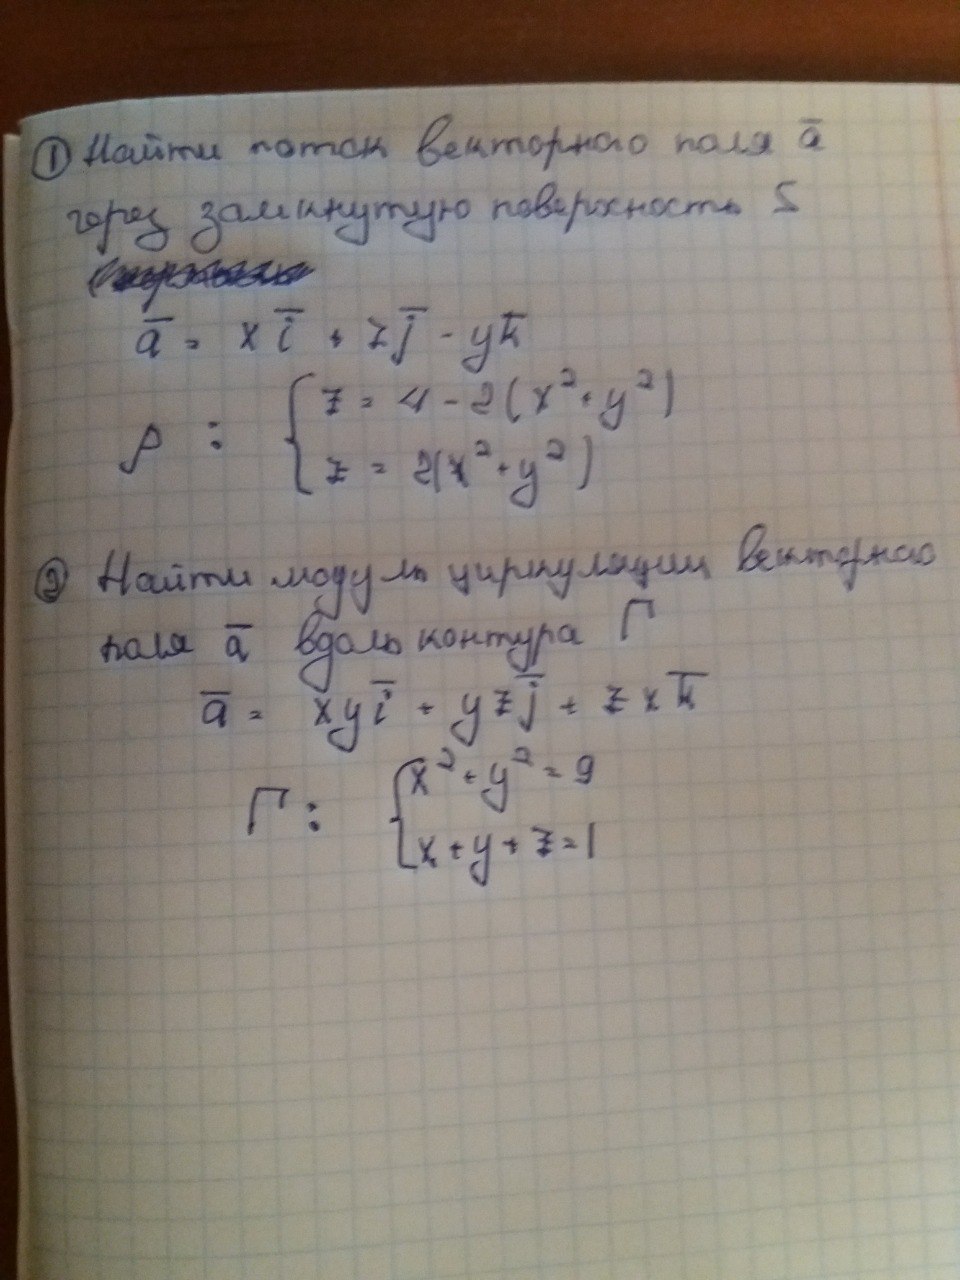 ① Найти поток векторного поля a̅
через замкнутую поверхность S
a̅ = x i̅ + z j̅ - y k̅
S : { z = 4 - 2(x² + y²)
z = 2(x² + y²)
② Найти модуль циркуляции векторного
поля a̅ вдоль контура Г
a̅ = xy i̅ + yz j̅ + zx k̅
Г : { x² + y² = 9
x + y + z = 1